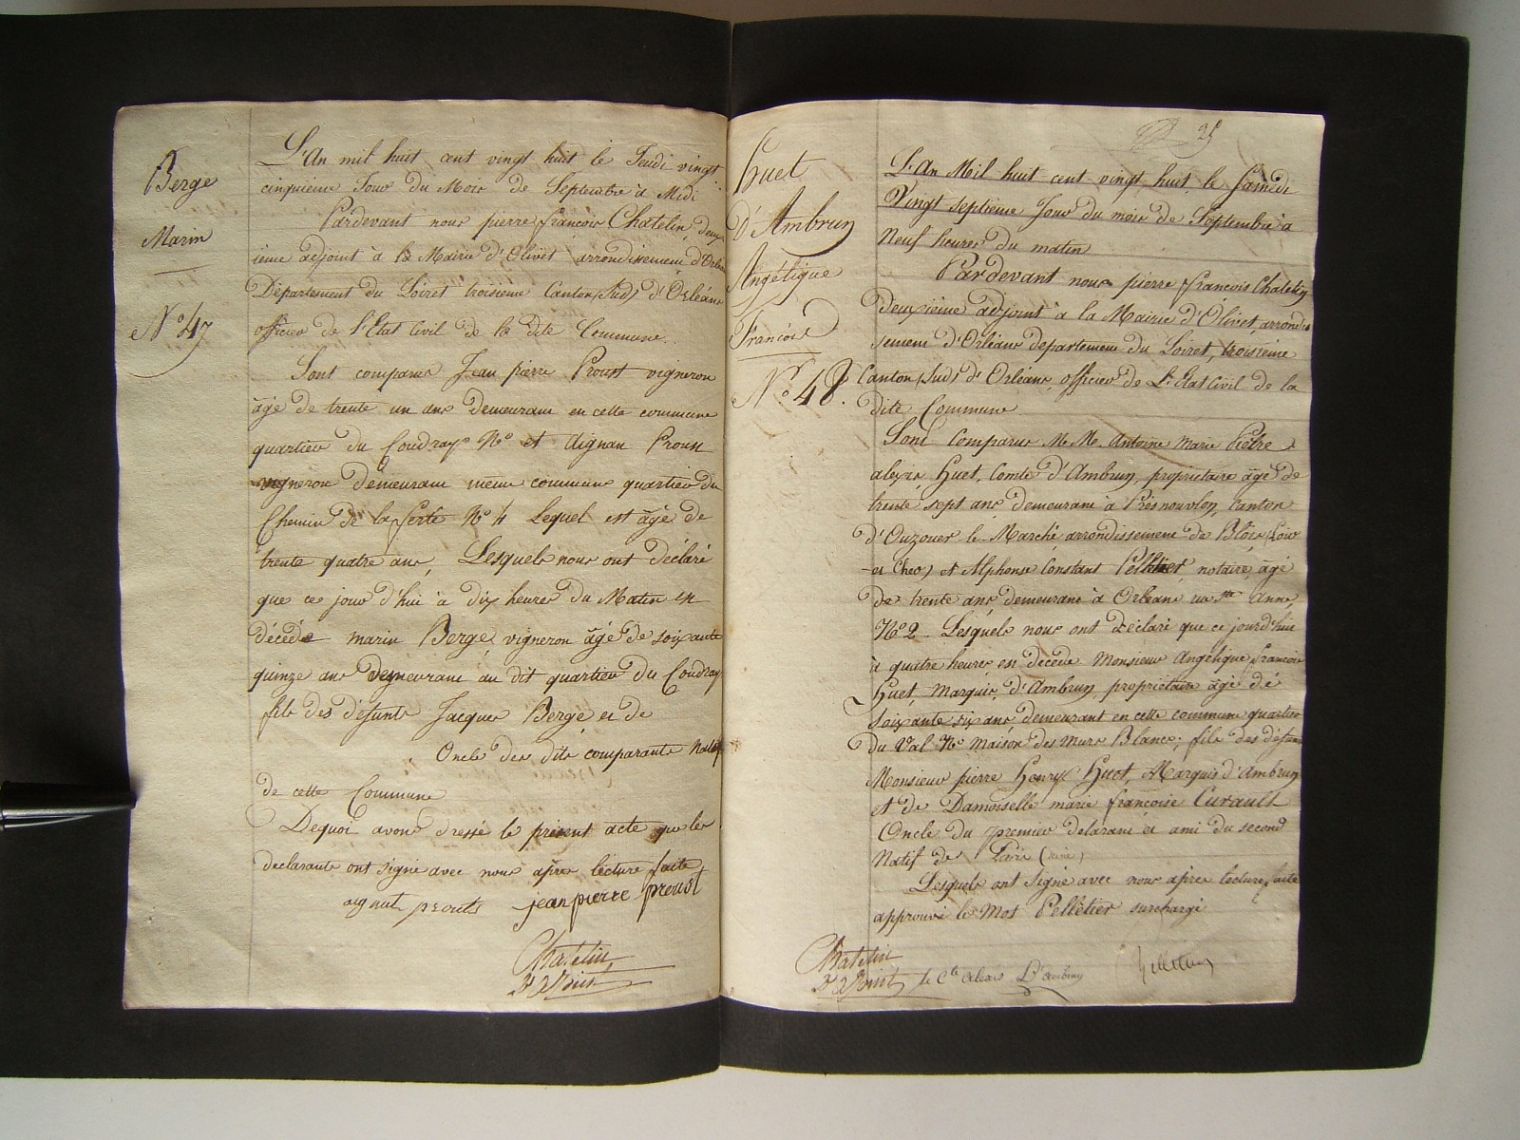 Berge
Marin
N.º 47
L'An mil huit cent vingt huit le Jeudi vingt
cinquieme Jour du Mois de Septembre à Midi
Pardevant nous pierre françois Chatelin, deux
ieme adjoint à la Mairie d'Olivet arrondissement d'Orléans
Département du Loiret troisieme Canton (Sud) d'Orléans
officier de l'Etat Civil de la dite Commune.
Sont comparus Jean pierre Proust vigneron
âgé de trente un ans demeurant en cette commune
quartier du Coudray Nº et Aignan Proust
vigneron demeurant même commune quartier du
Chemin de la ferté Nº 4 Lequel est âgé de
trente quatre ans, Lesquels nous ont déclaré
que ce jour d'hui à dix heures du Matin est
décédé marin Berge, vigneron âgé de soixante
quinze ans demeurant au dit quartier du Coudray
fils des défunts Jacques Berge et de
Oncle des dits comparants Natif
de cette Commune
Dequoi avons dressé le présent acte que les
declarants ont signé avec nous après lecture faite
aignan prouts jean pierre proust
Chatelin
Huet
D'Ambrun
Angélique
François
Nº 48.
25
L'An Mil huit cent vingt huit, le Samedi
Vingt septieme Jour du mois de Septembre à
Neuf heures du matin
Pardevant nous pierre françois Chatelin
deuxième adjoint à la Mairie d'Olivet, arrondis
sement d'Orléans departement du Loiret, troisieme
Canton (Sud) d'Orléans, officier de L'Etat Civil de la
dite Commune
Sont Comparus M.M. Antoine Marie Pierre
alexis Huet, Comte d'Ambrun, propriétaire âgé de
trente sept ans demeurant à Prénouvlon, Canton
d'Ouzouer le Marché arrondissement de Blois (Loir
et Cher) et Alphonse Constant Pelletier, notaire, âgé
de trente ans demeurant à Orléans rue Ste Anne,
Nº 2. Lesquels nous ont déclaré que ce jourd'hui
à quatre heures est décédé Monsieur Angélique françois
Huet, Marquis d'Ambrun propriétaire âgé de
soixante six ans demeurant en cette commune quartier
du Val Nº maison des Murs Blancs; fils des défunts
Monsieur pierre Henry Huet, Marquis d'Ambrun
et de Damoiselle marie françoise Curault
Oncle du premier déclarant et ami du second
Natif de Paris
Lesquels ont signé avec nous après lecture faite
approuvé le Mot Pelletier surchargé
Chatelin
le Cte Alexis D'ambrun
Pelletier